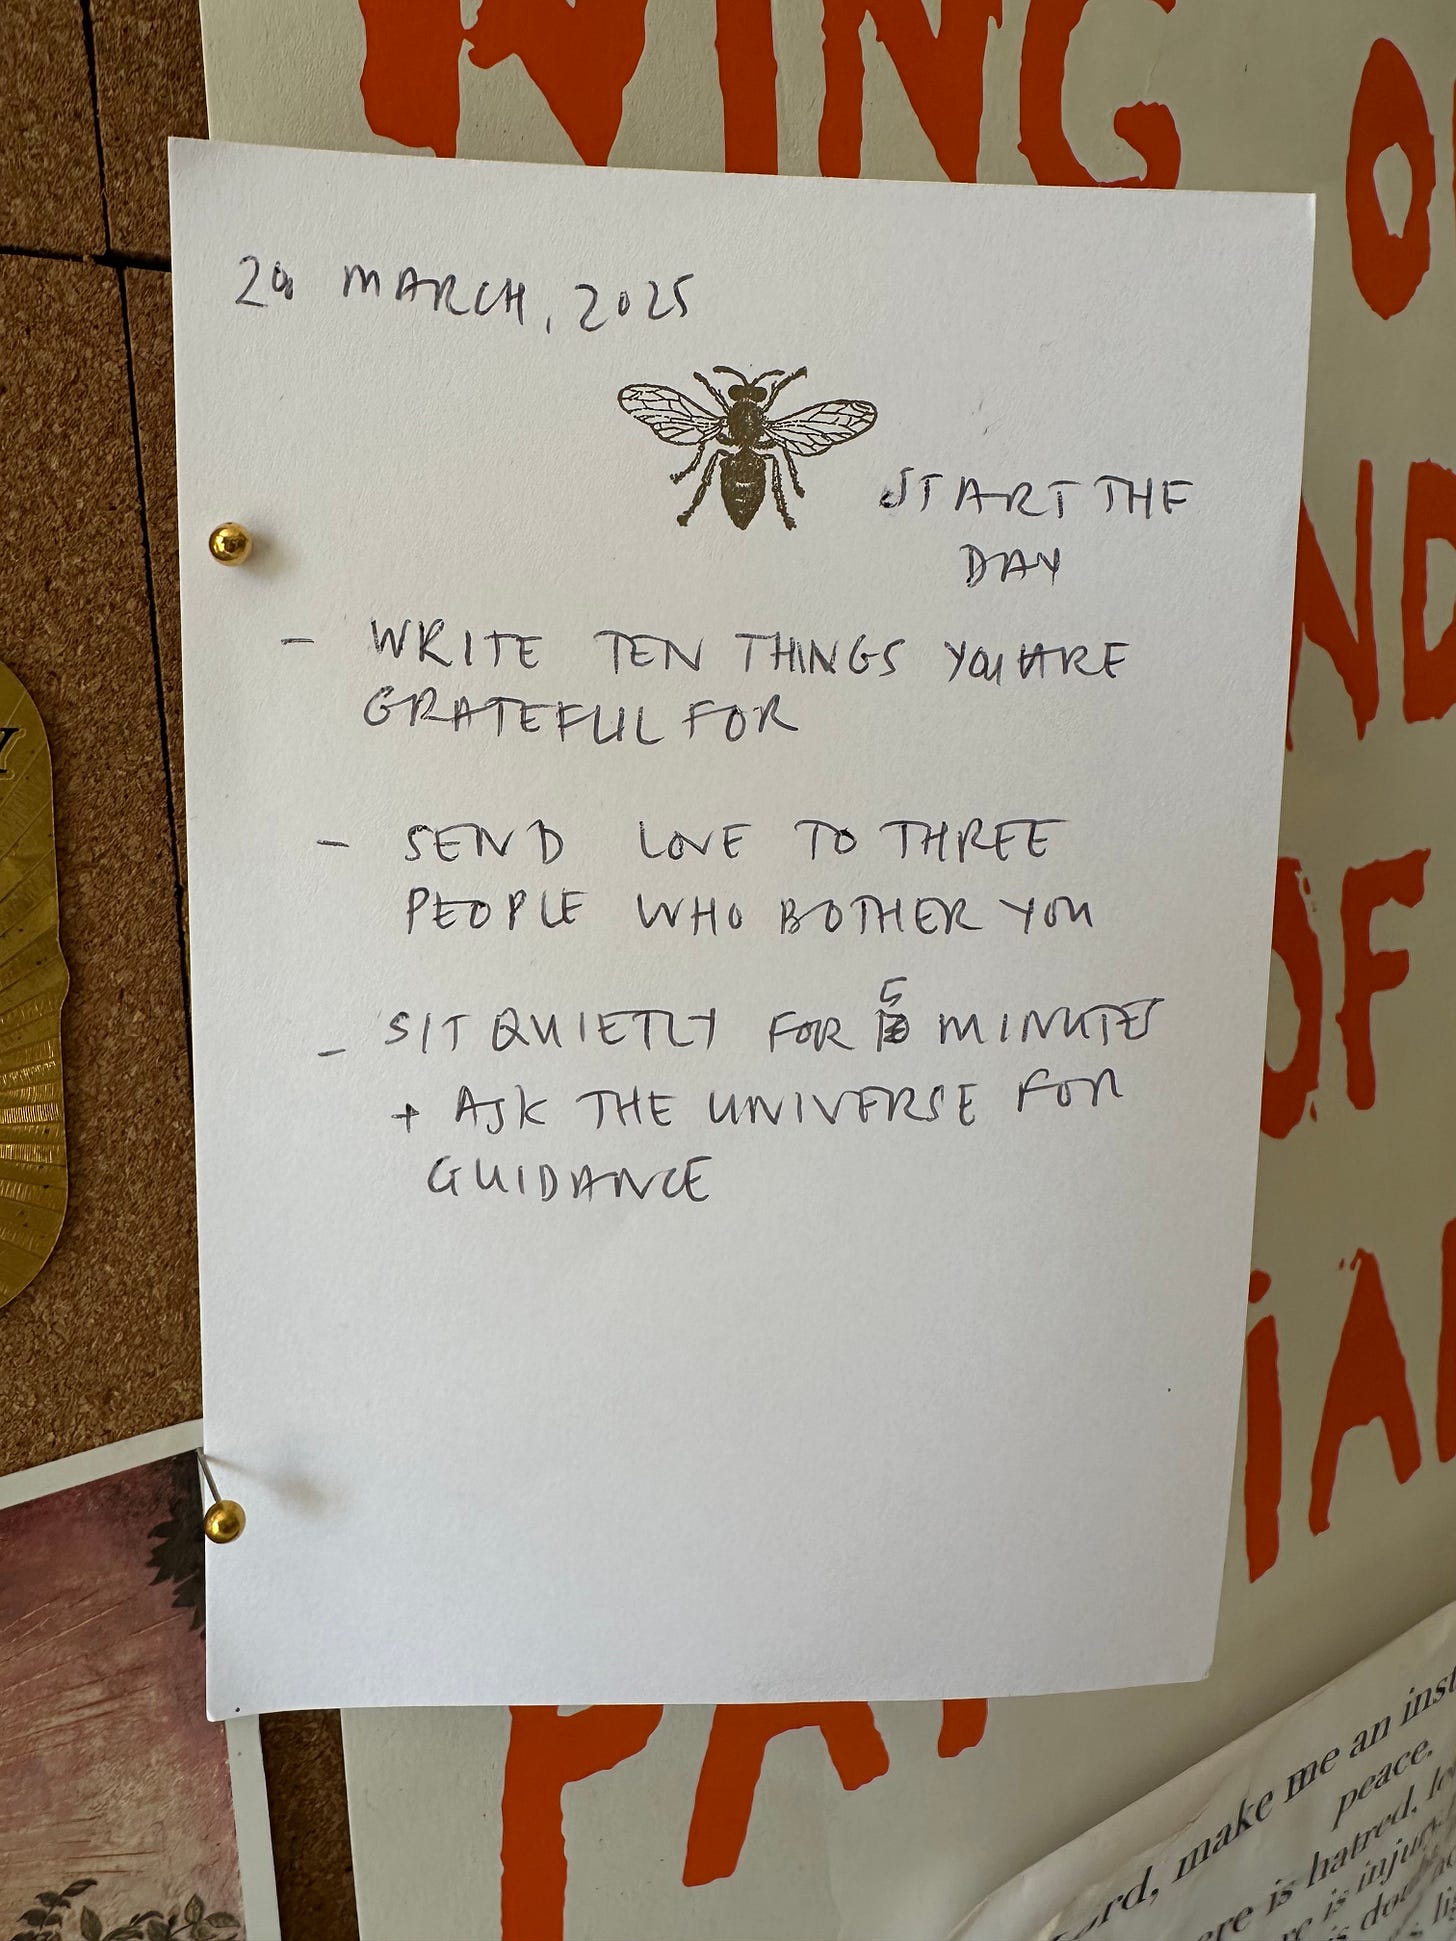 MARCH, 2025
START THE
DAY
- WRITE TEN THINGS YOU ARE
GRATEFUL FOR
- SEND LOVE TO THREE
PEOPLE WHO BOTHER YOU
- SIT QUIETLY FOR 5 MINUTES
+ ASK THE UNIVERSE FOR
GUIDANCE
OF
make me an
peace.
is hatred,
is